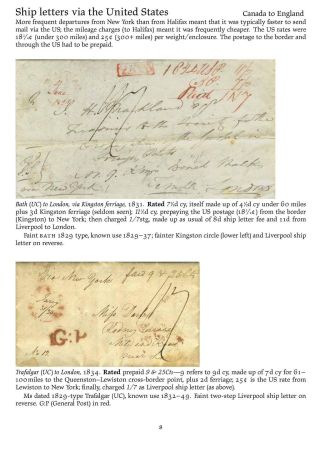 Ship letters via the United States
Canada to England
More frequent departures from New York than from Halifax meant that it was typically faster to send
mail via the US; the mileage charges (to Halifax) meant it was frequently cheaper. The US rates were
18¾¢ (under 300 miles) and 25¢ (300+ miles) per weight/enclosure. The postage to the border and
through the US had to be prepaid.
Paid
London
Bath (UC) to London, via Kingston ferriage, 1831. Rated 7½d cy, itself made up of 4½d cy under 60 miles
plus 3d Kingston ferriage (seldom seen); 11½d cy, prepaying the US postage (18¾¢) from the border
(Kingston) to New York; then charged 1/7stg, made up as usual of 8d ship letter fee and 11d from
Liverpool to London.
Faint BATH 1829 type, known use 1829–37; fainter Kingston circle (lower left) and Liverpool ship
letter on reverse.
Via New York
G·P
Trafalgar (UC) to London, 1834. Rated prepaid 9 & 25Cts—9 refers to 9d cy, made up of 7d cy for 61–
100miles to the Queenston–Lewiston cross-border point, plus 2d ferriage; 25¢ is the US rate from
Lewiston to New York; finally, charged 1/7 as Liverpool ship letter (as above).
Ms dated 1829-type Trafalgar (UC), known use 1832–49. Faint two-step Liverpool ship letter on
reverse. G:P (General Post) in red.